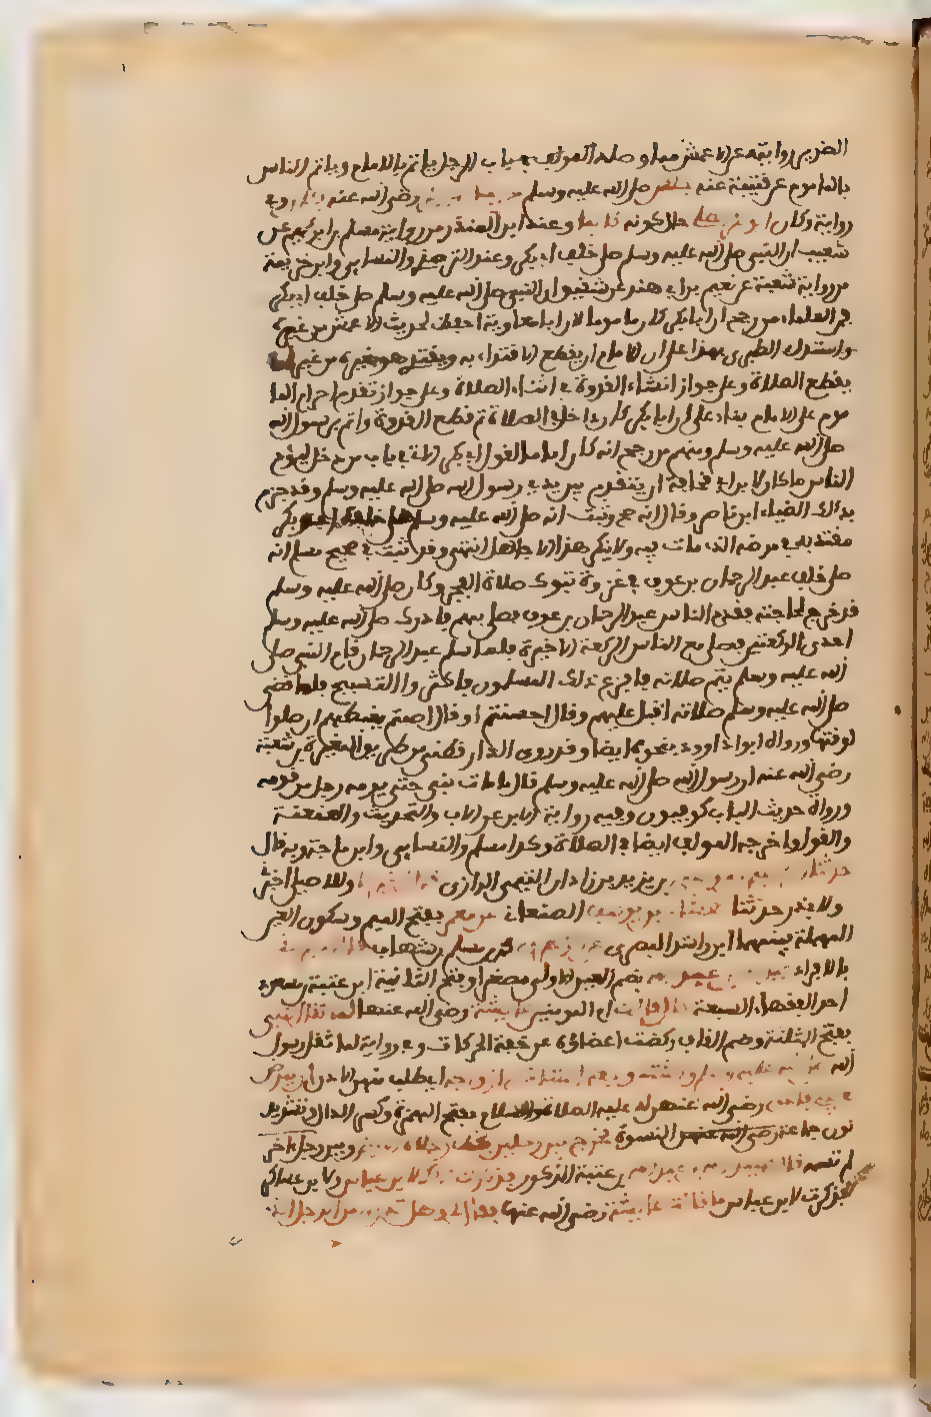 الضرير روايته عن الاعمش مما وصله المولف في باب الرجل ياتم بالامام وياتم الناس
بالماموم عن قتيبة عنه بلفظ صلى الله عليه وسلم رضي الله عنه
رواية وكان ابو بكر حال كونه قايما وعند ابن المنذر من رواية مسلم بن ابراهيم عن
شعبة ان النبي صلى الله عليه وسلم صلى خلف ابي بكر وعند الترمذي والنسايي وابن خزيمة
من رواية شعبة عن نعيم بن ابي هند عن شقيق ان النبي صلى الله عليه وسلم صلى خلف ابي بكر
فمن العلماء من رجح ان ابا بكر كان ماموما لان ابا معاوية احفظ لحديث الاعمش من غيره
واستدل الطبري بهذا على ان للامام ان يقطع الاقتداء به ويقتدي هو بغيره من غير ان
يقطع الصلاة وعلى جواز انشاء القدوة في اثناء الصلاة وعلى جواز تقدم احرام الما
موم على الامام بناء على ان ابا بكر كان دخل في الصلاة ثم قطع القدوة وائتم برسول الله
صلى الله عليه وسلم ومنهم من رجح انه كان اماما لقول ابي بكر الاتي في باب من دخل ليؤم
الناس ما كان لابن ابي قحافة ان يتقدم بين يدي رسول الله صلى الله عليه وسلم وقد جزم
بذلك الضياء ابن ناصر وقال انه صح وثبت انه صلى الله عليه وسلم صلى خلف ابي بكر
مقتديا به في مرضه الذي مات فيه ولا ينكر هذا الا جاهل انتهى وقد ثبت في صحيح مسلم انه
صلى خلف عبد الرحمان بن عوف في غزوة تبوك صلاة الفجر وكان صلى الله عليه وسلم
قد خرج لحاجته فقدم الناس عبد الرحمان بن عوف فصلى بهم فادرك صلى الله عليه وسلم
احدى الركعتين فصلى مع الناس الركعة الاخيرة فلما سلم عبد الرحمان قام النبي صلى
الله عليه وسلم يتم صلاته فافزع ذلك المسلمون فاكثروا التسبيح فلما قضى
صلى الله عليه وسلم صلاته اقبل عليهم وقال احسنتم او قال اصبتم يغبطهم ان صلوا
لوقتها ورواه ابو داوود بنحوه ايضا وقد روى الدارقطني من طريق المغيرة بن شعبة
رضي الله عنه ان رسول الله صلى الله عليه وسلم قال ما مات نبي حتى يؤمه رجل من قومه
ورواة حديث الباب كوفيون وفيه رواية الابن عن الاب والتحديث والعنعنة
والقول واخرجه المولف ايضا في الصلاة وكذا مسلم والنسايي وابن ماجة وبه قال
حدثنا بن يزيد بن زادان التيمي الرازي وللاصيلي اخبرنا
ولابي ذر حدثنا هشام بن يوسف الصنعاني عن معمر بفتح الميم وسكون العين
المهملة بينهما ابن راشد البصري عن الزهري محمد بن مسلم بن شهاب
بالافراد عبيد الله بضم العين الاولى مصغرا وفتح الثانية ابن عتبة بن مسعود
احد الفقهاء السبعة قال قالت ام المومنين عايشة رضي الله عنها لما ثقل النبي
بفتح المثلثة وضم القاف ركضت اعضاؤه عن خفة الحركات وفي رواية لما ثقل رسول
الله صلى الله عليه وسلم واشتد وجعه استاذن ازواجه اي طلب منهن الاذن ان يمرض
في بيتي فاذن رضي الله عنهن له عليه الصلاة والسلام بفتح الهمزة وكسر الذال وتشديد
نون جماعة النسوة فخرج بين رجلين تخط رجلاه الارض وبين رجل اخر
لم تسمه قال عبيد الله بن عتبة المذكور فذكرت ذلك لابن عباس ولابن عساكر
فذكرت لابن عباس ما قالت عايشة رضي الله عنها فقال لي وهل تدري من الرجل الذي